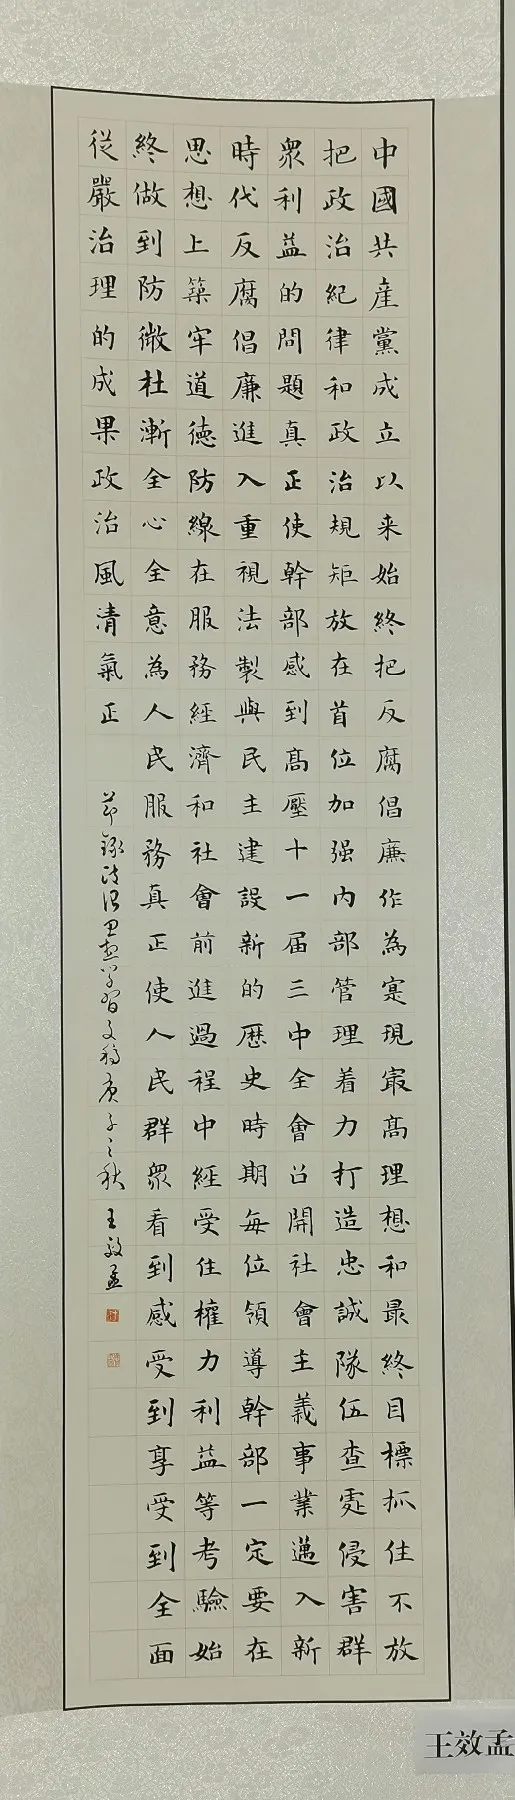 中國共産黨成立以来始終把反腐倡廉作為寔現寂高理想和最終目標抓住不放
把政治紀律和政治規矩放在首位加强内部管理着力打造忠誠隊伍查處侵害群
衆利益的問題真正使幹部感到高壓十一届三中全會召開社會主義事業邁入新
時代反腐倡廉進入重視法製與民主建設新的歷史時期每位領導幹部一定要在
思想上築牢道德防線在服務經濟和社會前進過程中經受住權力利益等考驗始
終做到防微杜漸全心全意為人民服務真正使人民群衆看到感受到享受到全面
從嚴治理的成果政治風清氣正
節錄政治思想學習文稿庚子之秋王效孟
王效孟